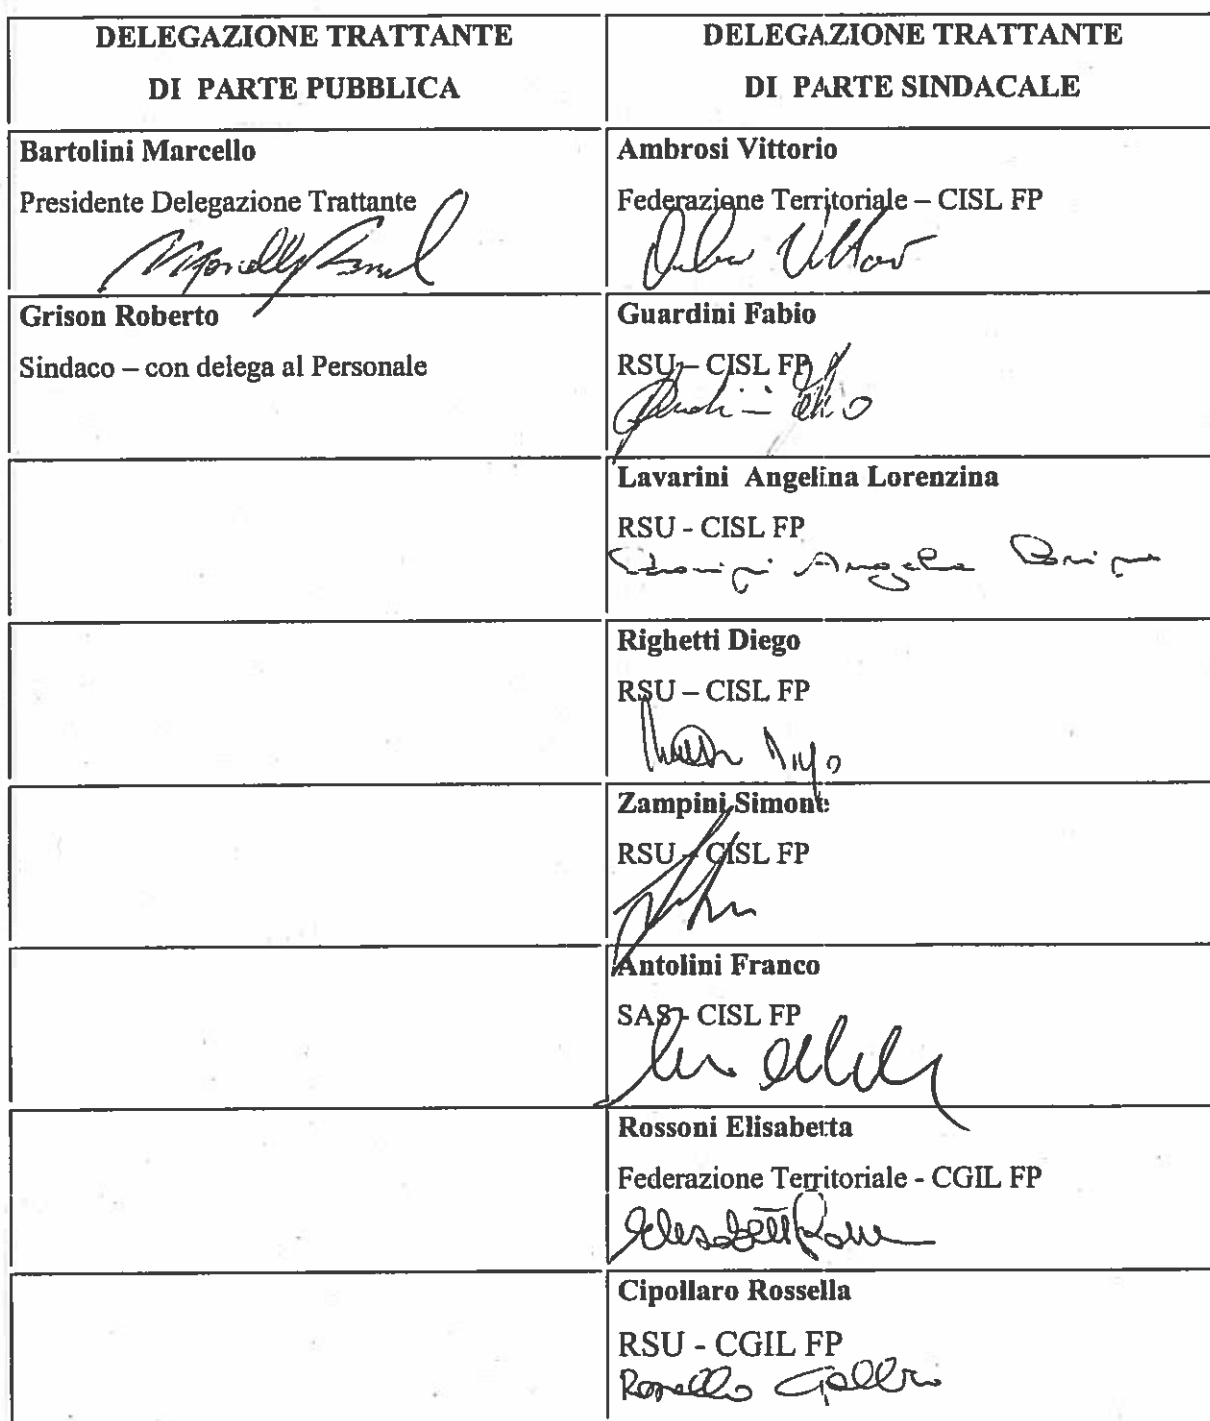 DELEGAZIONE TRATTANTE
DI PARTE PUBBLICA
DELEGAZIONE TRATTANTE
DI PARTE SINDACALE
Bartolini Marcello
Presidente Delegazione Trattante
Ambrosi Vittorio
Federazione Territoriale – CISL FP
Grison Roberto
Sindaco – con delega al Personale
Guardini Fabio
RSU – CISL FP
Lavarini Angelina Lorenzina
RSU - CISL FP
Righetti Diego
RSU – CISL FP
Zampini Simone
RSU – CISL FP
Antolini Franco
SAS - CISL FP
Rossoni Elisabetta
Federazione Territoriale - CGIL FP
Cipollaro Rossella
RSU - CGIL FP